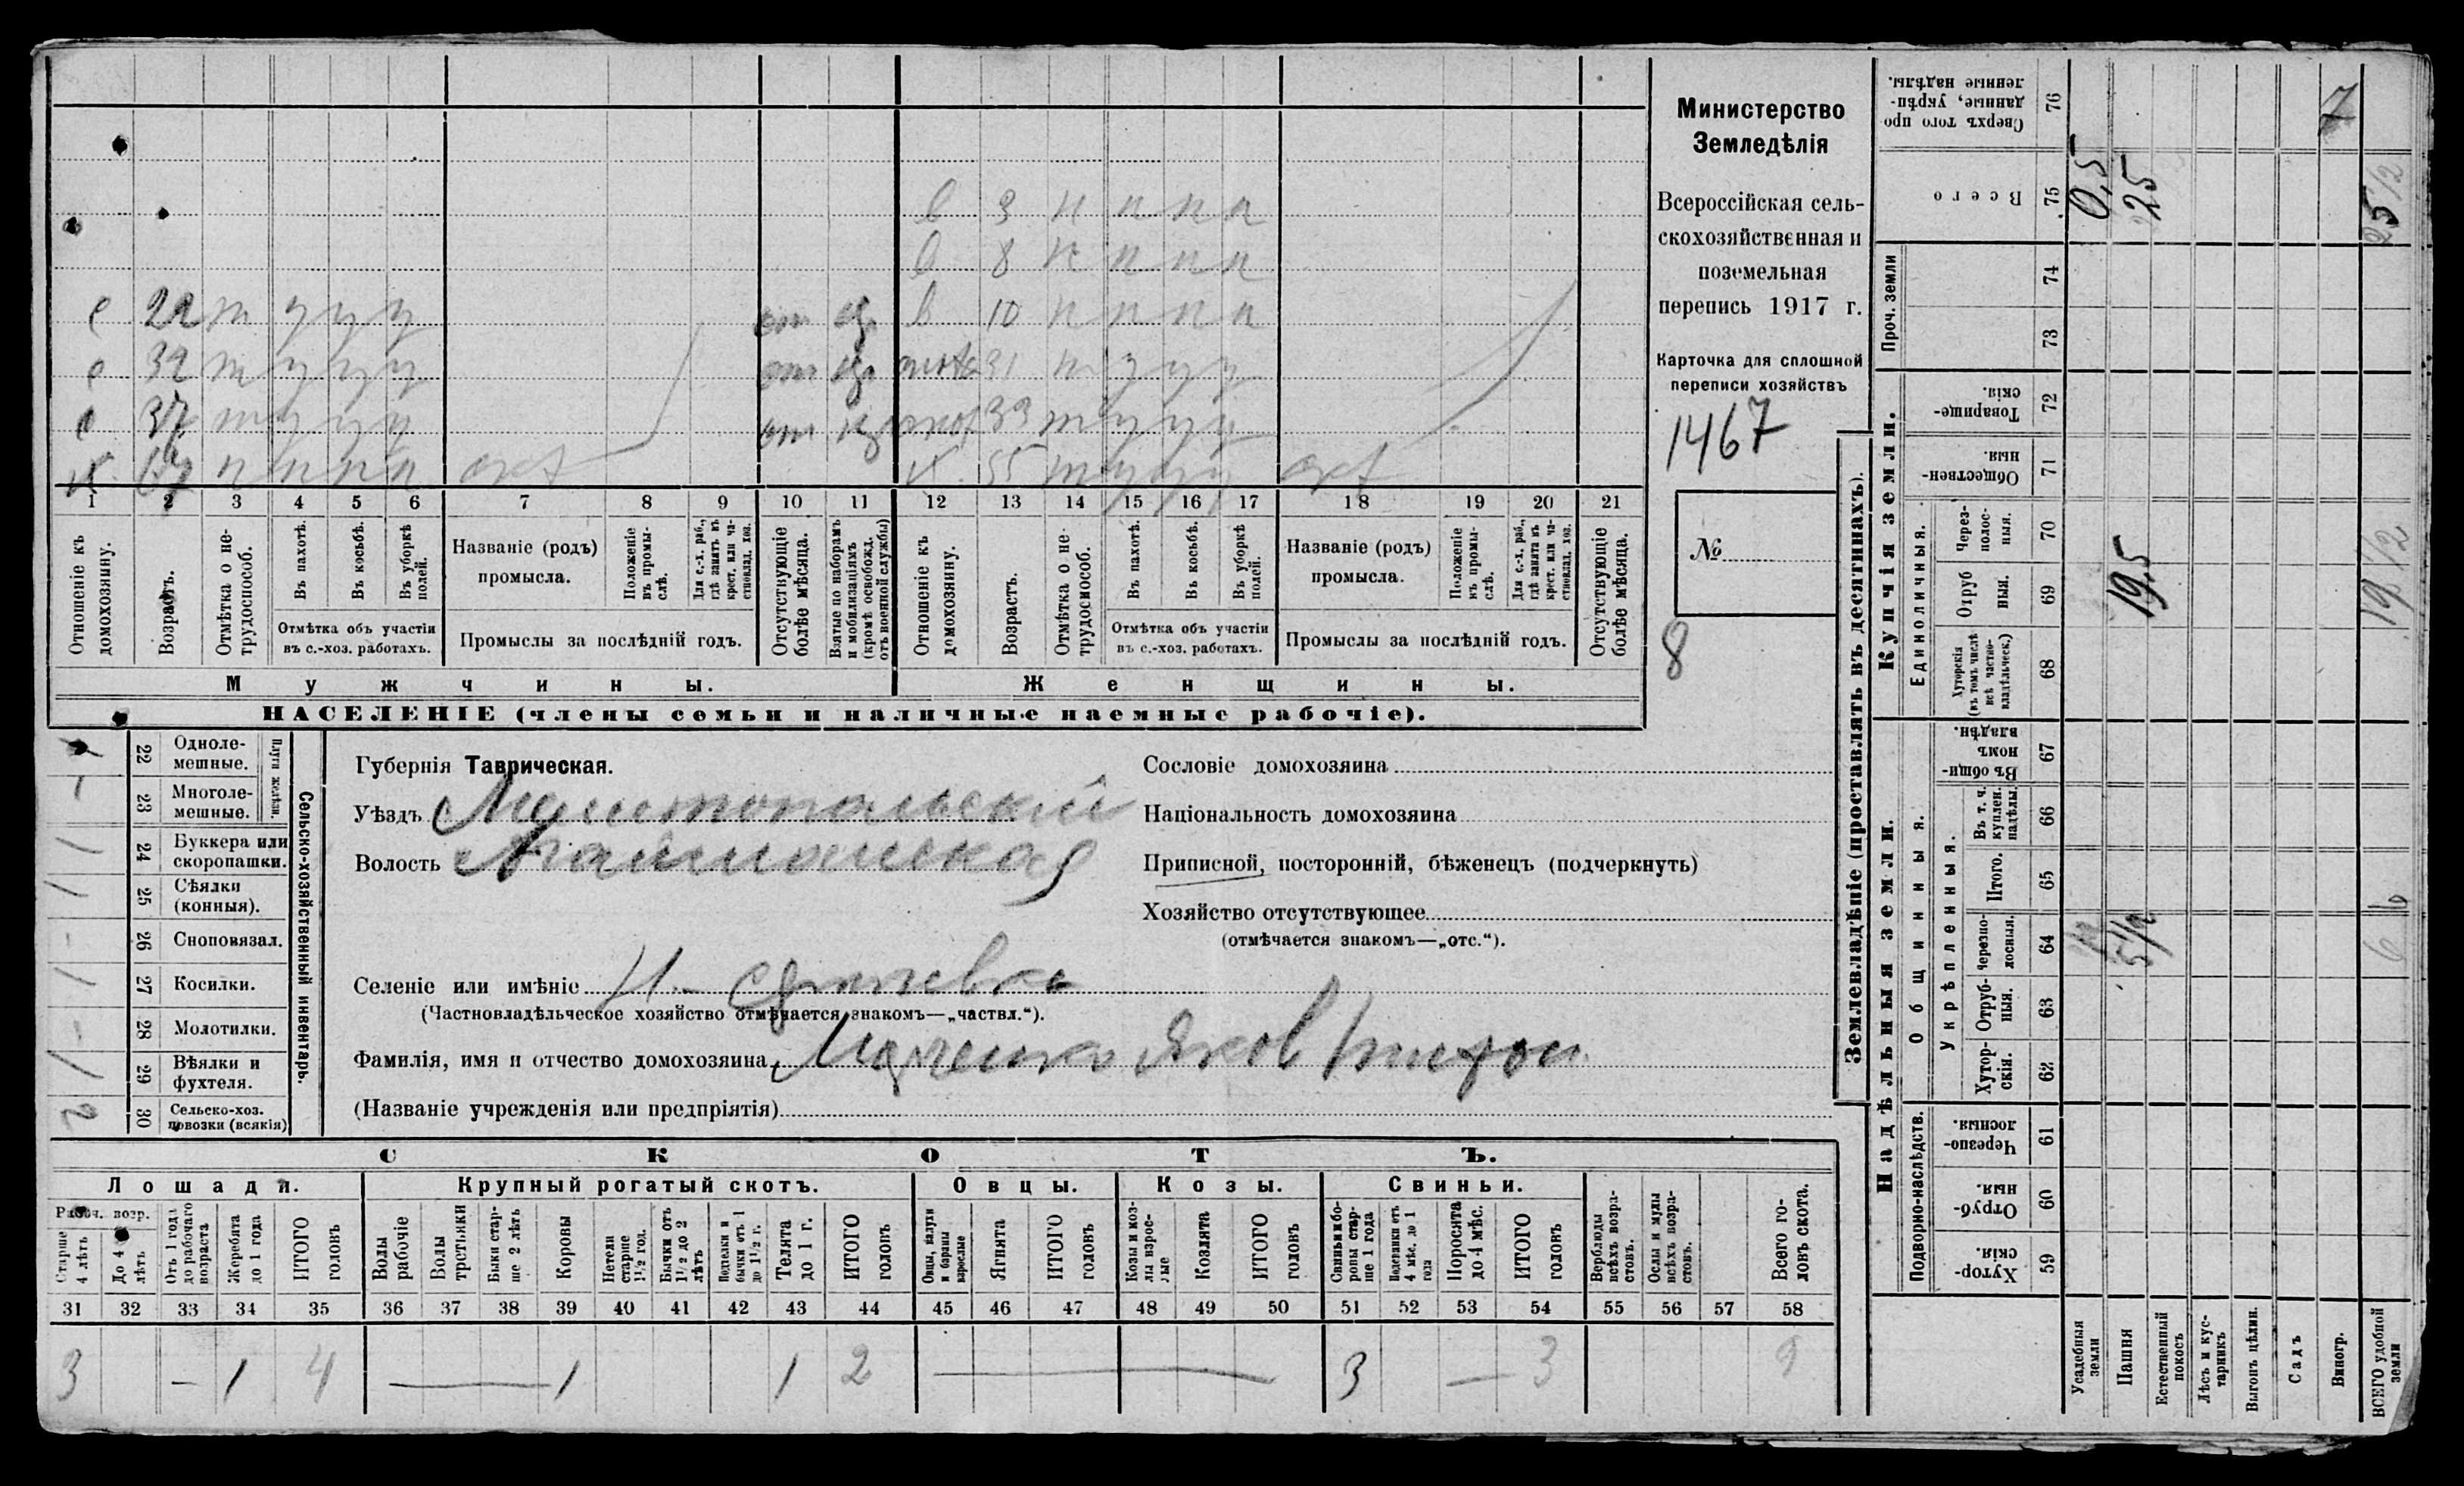 в 3 н н н н
в 8 н н н н
е 22 т у у у от в 10 н н н н
е 32 т у у у от 31 н у у у
е 37 т у у у от 33 т у у у
х. 67 н н н н х. 55 т у у у
1 2 3 4 5 6 7 8 9 10 11 12 13 14 15 16 17 18 19 20 21
Отношеніе къ домохозяину.
Возрастъ.
Отмѣтка о не-трудоспособ.
Въ пахотѣ.
Въ косьбѣ.
Въ уборкѣ полей.
Отмѣтка объ участіи
въ с.-хоз. работахъ.
Названіе (родъ)
промысла.
Положеніе въ промы-слѣ.
Для с.-х. раб., гдѣ занятъ въ крест. или ча-стновлад. хоз.
Промыслы за послѣдній годъ.
Отсутствующіе болѣе мѣсяца.
Взятые по наборамъ и мобилизаціямъ (кромѣ освобожд. отъ военной службы)
Отношеніе къ домохозяину.
Возрастъ.
Отмѣтка о не-трудоспособ.
Въ пахотѣ.
Въ косьбѣ.
Въ уборкѣ полей.
Отмѣтка объ участіи
въ с.-хоз. работахъ.
Названіе (родъ)
промысла.
Положеніе въ промы-слѣ.
Для с.-х. раб., гдѣ занята въ крест. или ча-стновлад. хоз.
Промыслы за послѣдній годъ.
Отсутствующіе болѣе мѣсяца.
Мужчины.
Женщины.
НАСЕЛЕНІЕ (члены семьи и наличные наемные рабочіе).
Министерство
Земледѣлія
Всероссійская сель-
скохозяйственная и
поземельная
перепись 1917 г.
Карточка для сплошной
переписи хозяйствъ
1467
№
8
Сельско-хозяйственный инвентарь.
Плуги желѣзн.
1 22 Одноле-мешные.
– 23 Многоле-мешные.
1 24 Буккера или скоропашки.
1 25 Сѣялки (конныя).
– 26 Сноповязал.
1 27 Косилки.
– 28 Молотилки.
1 29 Вѣялки и фухтеля.
2 30 Сельско-хоз. повозки (всякія)
Губернія Таврическая.
Уѣздъ Мелитопольскій
Волость
Селеніе или имѣніе Н.-
(Частновладѣльческое хозяйство отмѣчается знакомъ—„частвл.“).
Фамилія, имя и отчество домохозяина Яков
(Названіе учрежденія или предпріятія)
Сословіе домохозяина
Національность домохозяина
Приписной, посторонній, бѣженецъ (подчеркнуть)
Хозяйство отсутствующее
(отмѣчается знакомъ—„отс.“).
СКОТЪ.
Лошади. Крупный рогатый скотъ. Овцы. Козы. Свиньи.
Рабоч. возр.
Старше 4 лѣтъ
До 4 лѣтъ
Отъ 1 года до рабочаго возраста
Жеребята до 1 года
ИТОГО головъ
Волы рабочіе
Волы третьяки
Быки стар-ше 2 лѣтъ
Коровы
Нетели старше 1½ год.
Бычки отъ 1½ до 2 лѣтъ
Подтелки и бычки отъ 1 до 1½ г.
Телята до 1 г.
ИТОГО головъ
Овцы, валухи и бараны взрослые
Ягнята
ИТОГО головъ
Козы и коз-лы взрос-лые
Козлята
ИТОГО головъ
Свиньи и бо-ровы стар-ше 1 года
Подсвинки отъ 4 мѣс. до 1 года
Поросята до 4 мѣс.
ИТОГО головъ
Верблюды всѣхъ возра-стовъ.
Ослы и мулы всѣхъ возра-стовъ.
Всего го-ловъ скота.
31 32 33 34 35 36 37 38 39 40 41 42 43 44 45 46 47 48 49 50 51 52 53 54 55 56 57 58
3 – 1 4 — 1 1 2 — 3 — 3 9
Землевладѣніе (проставлять въ десятинахъ).
Надѣльныя земли.
Купчія земли.
Проч. земли
Подворно-наслѣдств.
Общинныя.
Укрѣпленныя.
Единоличныя.
Сверхъ того про-данные, укрѣп-ленные надѣлы. 76 7
Всего 75 0,5 25 25 1/2
74
73
Товарище-скія. 72
Обществен-ныя. 71
Через-полос-ныя. 70
Отруб ныя. 69 19,5 19 1/2
Хуторскія (въ томъ числѣ всѣ частно-владѣльческ.) 68
Въ общи-номъ владѣн. 67
Въ т. ч. куплен. надѣлы. 66
Итого. 65 6
Черезпо-лосныя. 64 1/2 5 1/2 6
Отруб-ныя. 63
Хутор-скія. 62
Черезпо-лосныя. 61
Отруб-ныя. 60
Хутор-скія. 59
Усадебныя земли
Пашня
Естественный покосъ
Лѣсъ и кус-тарникъ
Выгонъ цѣлин.
Садъ
Виногр.
ВСЕГО удобной земли